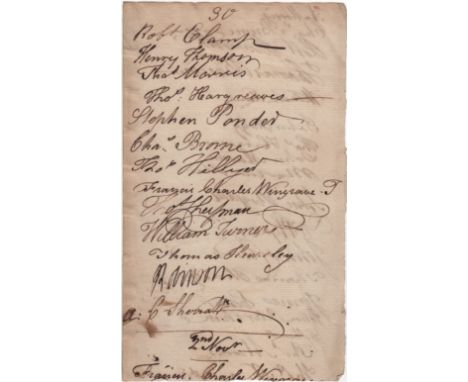 30
Robt Clamp
Henry Thomson
Thos Morris
Thos: Hargreaves
Stephen Ponder
Chas Brome
Thos Hillyer
Francis Charles Wingrave
William Turner
Thomas Hearsley
C Sherratt
2nd Novr
Francis Charles Wingrave